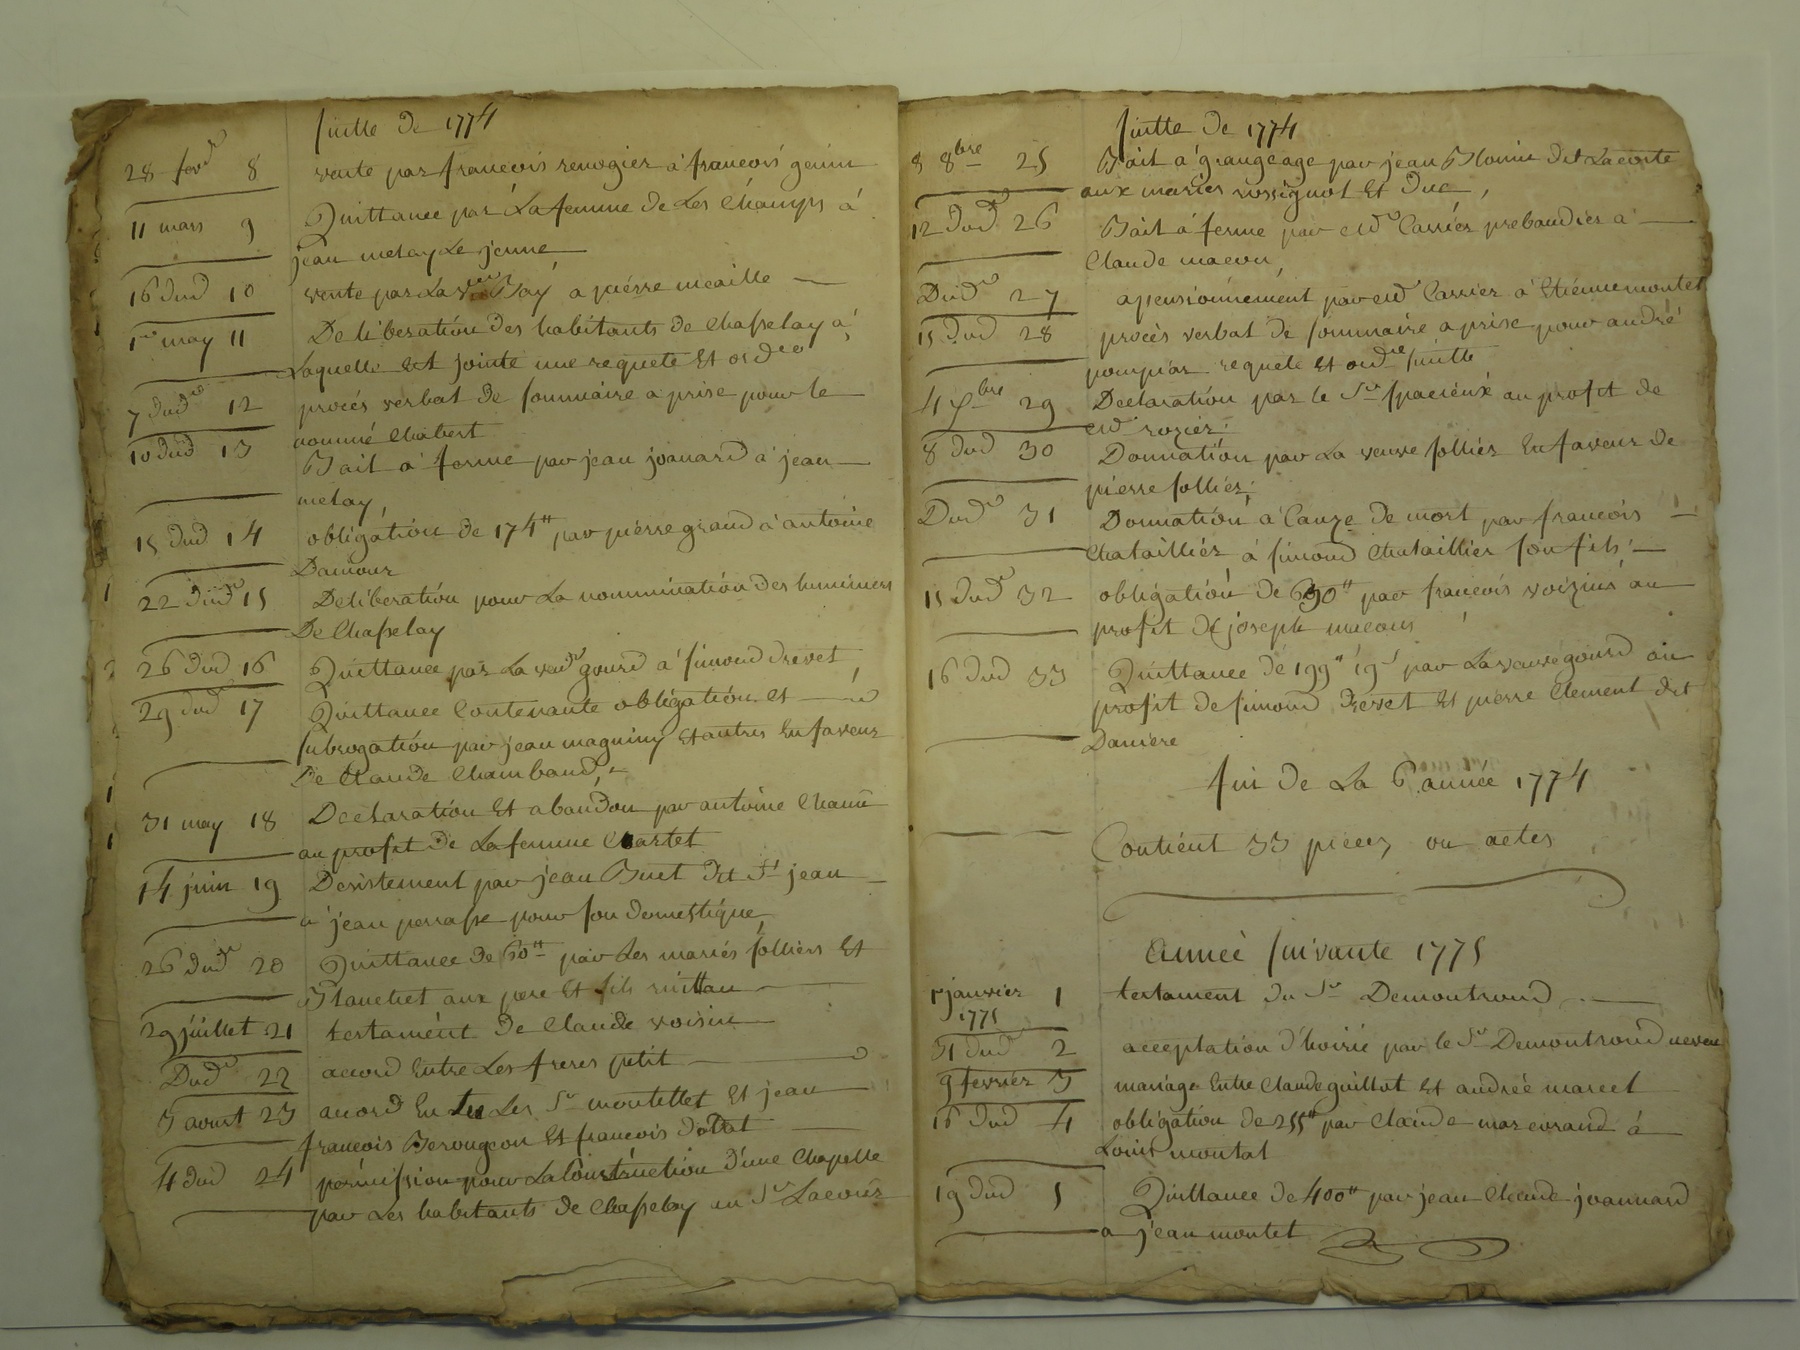 suitte de 1774
28 fevr 8 vente par francois renogier a francois genin
11 mars 9 Quittance par La femme de Les Champs a
jean melay Le jeune
16 dud 10 vente par La vve Bay a pierre meaille
1er may 11 Deliberation des habitants de Chasselay a
Laquelle est jointe une requete Et ordce
7 dud 12 procés verbal de sommaire a prise pour le
nommé Chabert
10 dud 13 Bail a ferme par jean joanard a jean
melay
15 dud 14 obligation de 174# par pierre grand a antoine
Damour
22 dud 15 Deliberation pour La nommination des luminiers
De Chasselay
26 dud 16 Quittance par La veuve gourd a simond drevet
29 dud 17 Quittance Contenante obligation et
subrogation par jean magniny et autres En faveur
De Claude Chambaud
31 may 18 Declaration Et abandon par antoine
au profit de La femme Chartet
14 juin 19 Desistement par jean Buet dit St jean
a jean perrasse pour son domestique
26 dud 20 Quittance de 60# par Les mariés folliers Et
Blanchet aux pere Et fils
29 juillet 21 testament de Claude voisin
Dud 22 accord Entre Les freres petit
3 aoust 23 accord Entre Les Sr montellet Et jean
francois Berougeon Et francois
4 dud 24 permission pour La Construction d'une Chapelle
par Les habitants de Chasselay au Sr Lacour
suitte de 1774
8 8bre 25 Bail a grangeage par jean Blonin dit Lacoste
aux mariés rossignol Et Duc
12 dud 26 Bail a ferme par Carrier prebandier a
Claude macon
Dud 27 apensionnement par Carrier a Etienne montet
15 dud 28 procés verbal de sommaire a prise pour andré
pompiar requete et ordce suitte
4 Xbre 29 Declaration par le Sr spacieux au profit de
rozier
8 dud 30 Donnation par La veuve folliér En faveur de
pierre folliér
Dud 31 Donnation a Cauze de mort par francois
Chataillier a simond Chataillier son fils
15 dud 32 obligation de 690# par francois voizins au
profit de joseph macons
16 dud 33 Quittance de 199# 19s par La veuve gourd au
profit de simond Drevet Et pierre Clement dit
Daniere
fin de La 6 année 1774
Contient 33 pieces ou actes
Année suivante 1775
1er janvier 1 testament du Sr Demontrond
1775
31 dud 2 acceptation d'hoirie par le Sr Demontrond neveu
9 fevrier 3 mariage Entre Claude guillot Et andrée marcel
16 dud 4 obligation de 255# par Claude marcorand á
Louis montat
19 dud 5 Quittance de 400# par jean Claude joannard
a jean montet